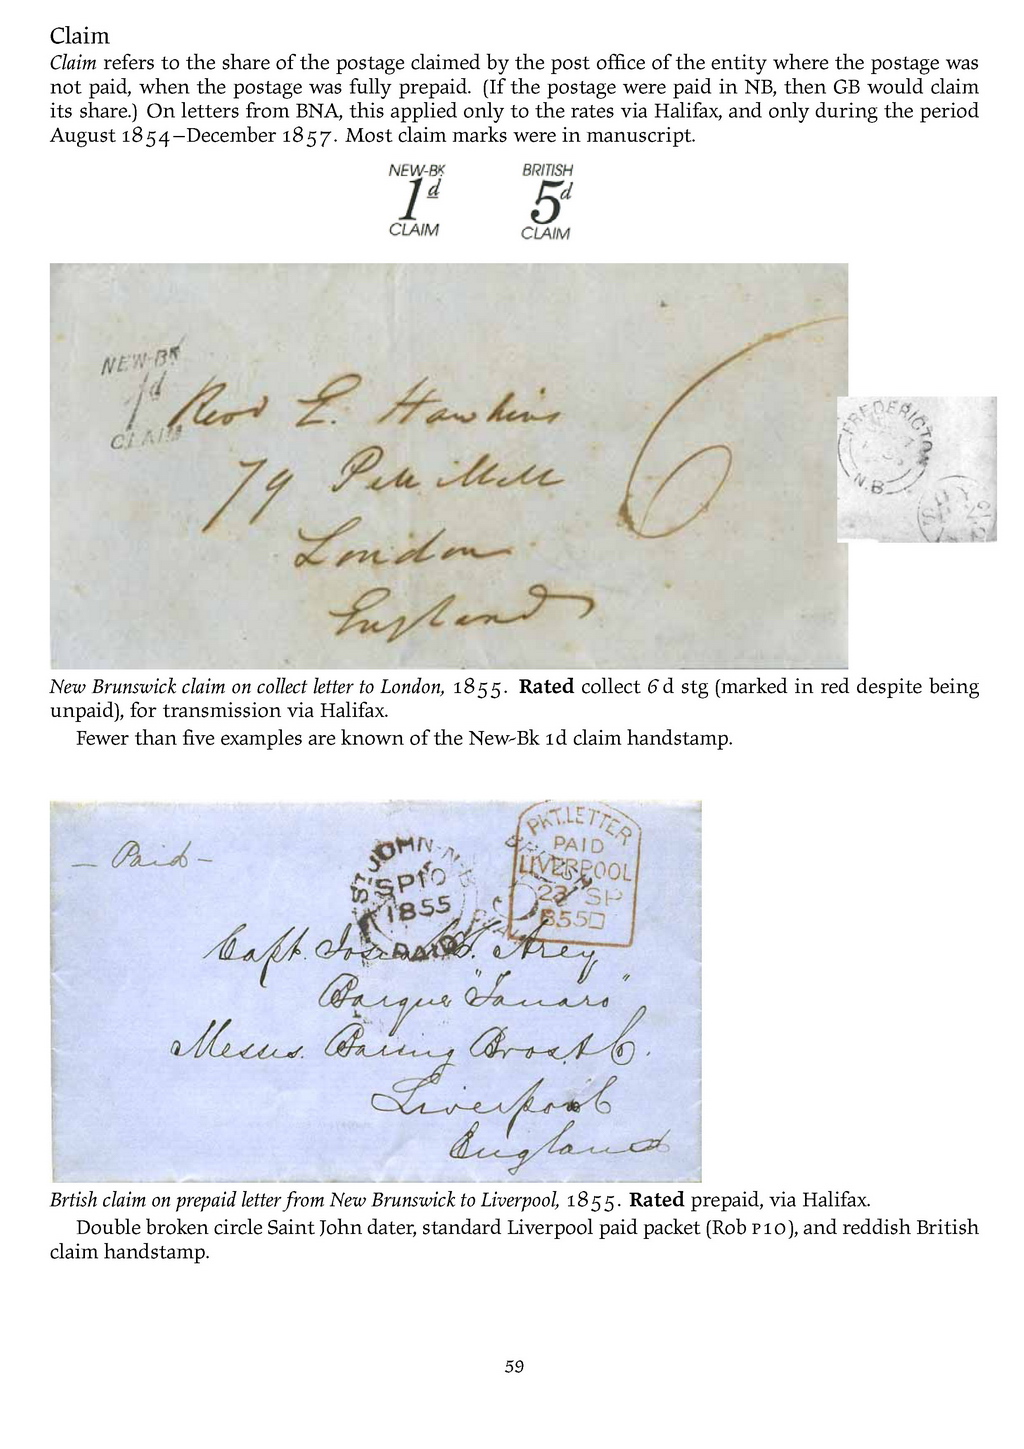 Claim
Claim refers to the share of the postage claimed by the post office of the entity where the postage was
not paid, when the postage was fully prepaid. (If the postage were paid in NB, then GB would claim
its share.) On letters from BNA, this applied only to the rates via Halifax, and only during the period
August 1854–December 1857. Most claim marks were in manuscript.
NEW-BK
1d
CLAIM
BRITISH
5d
CLAIM
NEW-BK
1d
CLAIM
Revd E. Hawkins
79 Pall Mall
London
England
6
FREDERICTON
N.B
New Brunswick claim on collect letter to London, 1855. Rated collect 6d stg (marked in red despite being
unpaid), for transmission via Halifax.
Fewer than five examples are known of the New-Bk 1d claim handstamp.
– Paid –
ST JOHN N.B
SP 10
1855
PAID
PKT. LETTER
PAID
LIVERPOOL
SP
Capt. H. Arey
Barque "Tanaro"
Messrs. Baring Bros & Co.
Liverpool
England
Brtish claim on prepaid letter from New Brunswick to Liverpool, 1855. Rated prepaid, via Halifax.
Double broken circle Saint John dater, standard Liverpool paid packet (Rob P10), and reddish British
claim handstamp.
59